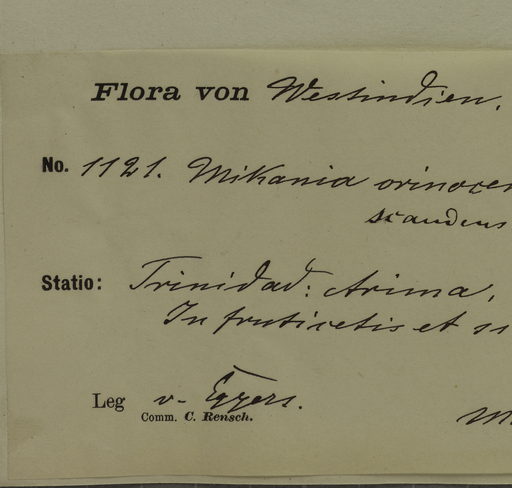 Flora von Westindien.
No. 1121. Mikania orinocen
scandens
Statio: Trinidad: Arima.
In fruticetis et
Leg v. Eggers.
Comm. C. Rensch.